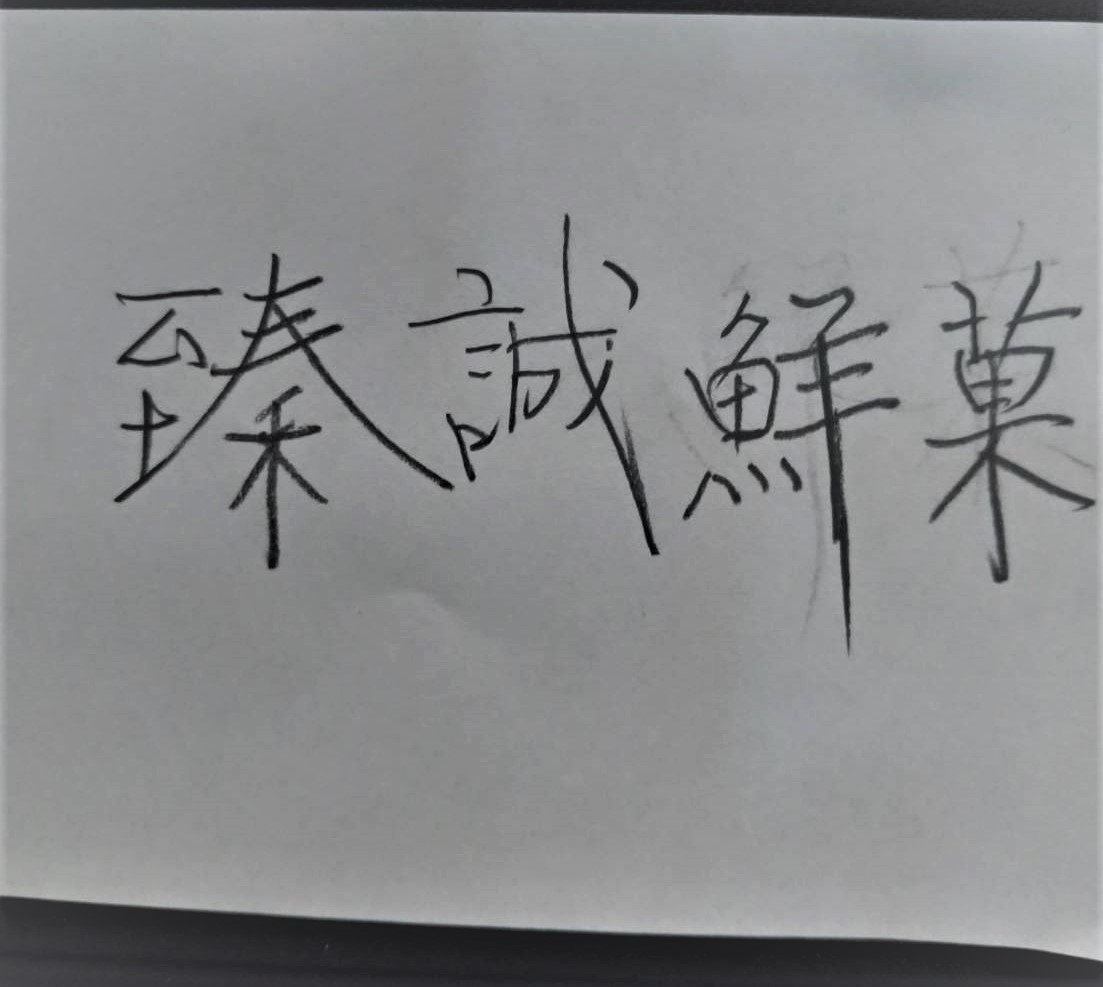 臻誠鮮菓